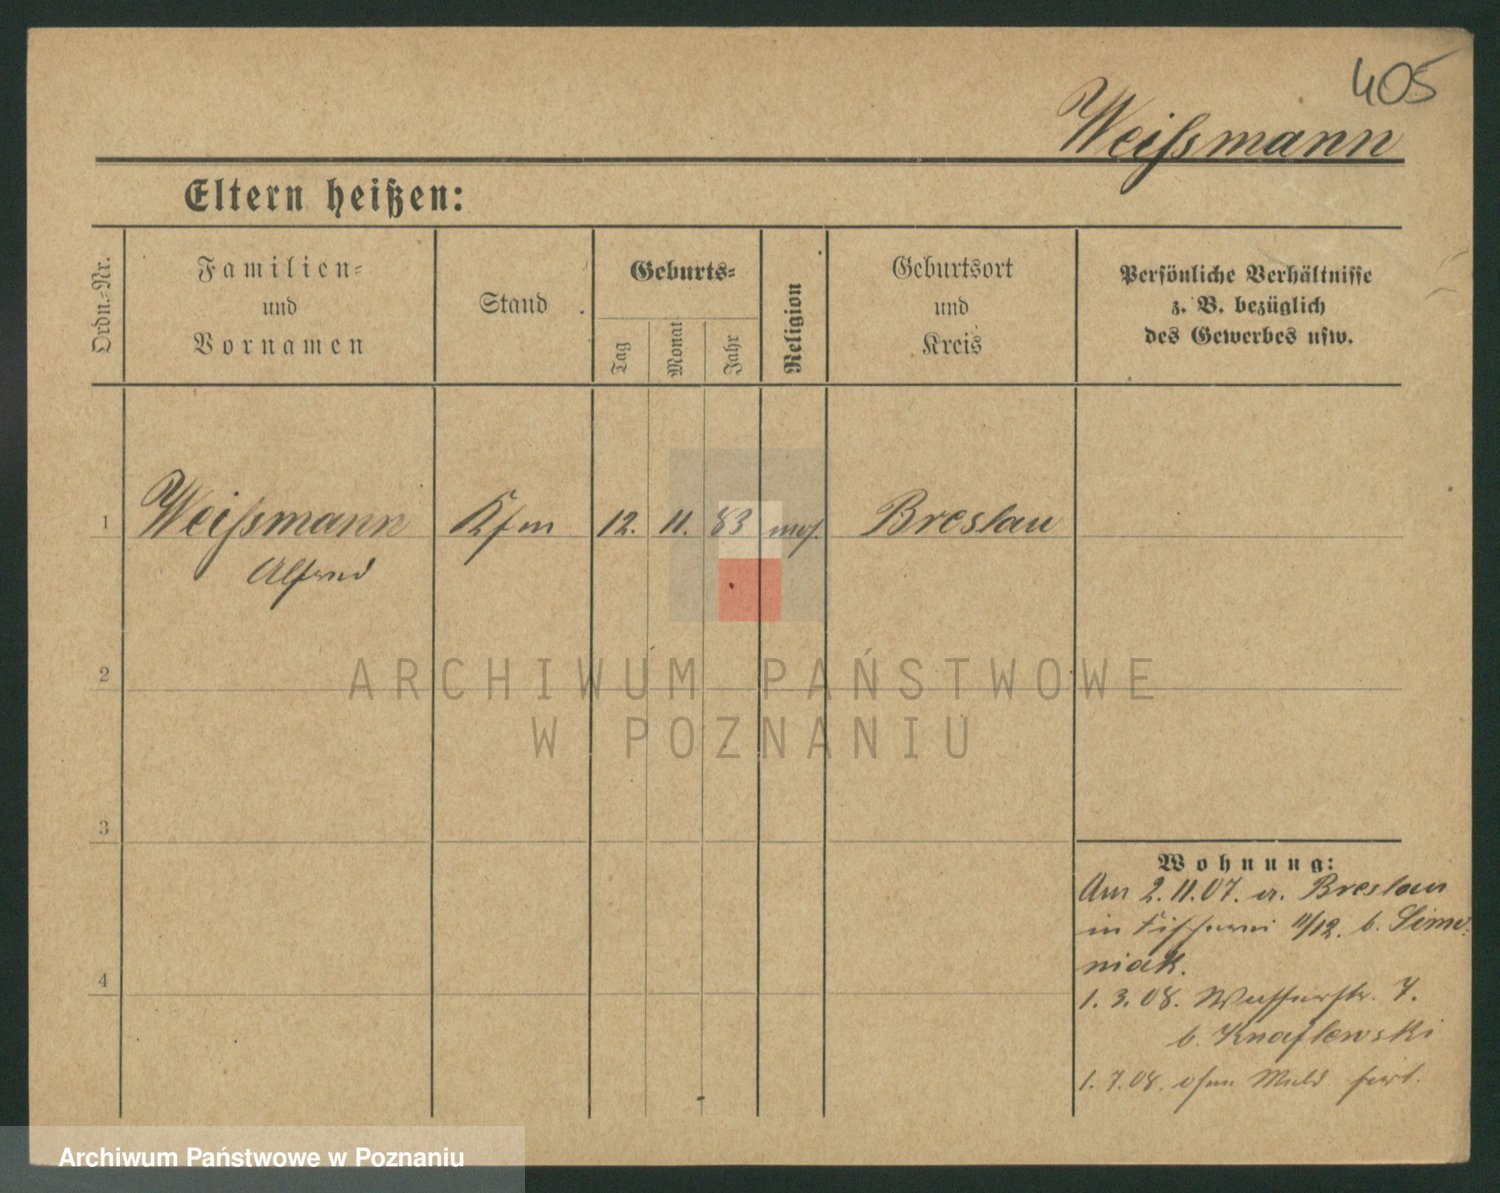 405
Weißmann
Eltern heißen:
Ordn.-Nr.
Familien-
und
Vornamen
Stand
Geburts-
Tag
Monat
Jahr
Religion
Geburtsort
und
Kreis
Persönliche Verhältnisse
z. B. bezüglich
des Gewerbes usw.
1
Weißmann Kfm 12. 11. 83 mos. Breslau
Alfred
2
3
4
ARCHIWUM PAŃSTWOWE
W POZNANIU
Wohnung:
Am 2.11.07. a. Breslau
in Fischerei 11/12. b. Simo
niak.
1. 3. 08. Wasserstr. 7.
b. Knaflewski
1. 7. 08. ohne Meld. fort.
Archiwum Państwowe w Poznaniu